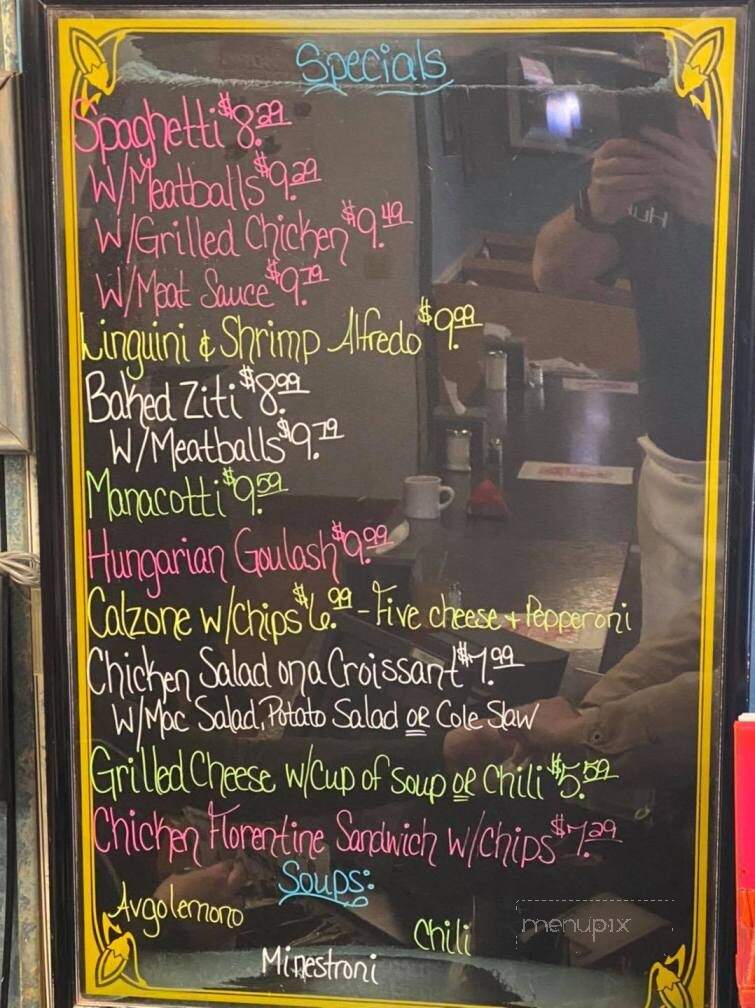 Specials
Spaghetti $8.29
W/Meatballs $9.29
W/Grilled Chicken $9.49
W/Meat Sauce $9.79
Linguini & Shrimp Alfredo $9.99
Baked Ziti $8.99
W/Meatballs $9.79
Manacotti $9.59
Hungarian Goulash $9.99
Calzone w/Chips $6.99 - Five cheese + Pepperoni
Chicken Salad on a Croissant $7.99
W/Mac Salad, Potato Salad or Cole Slaw
Grilled Cheese w/Cup of Soup or Chili $5.59
Chicken Florentine Sandwich w/Chips $7.29
Soups:
Avgolemono
Chili
Minestroni
menupix